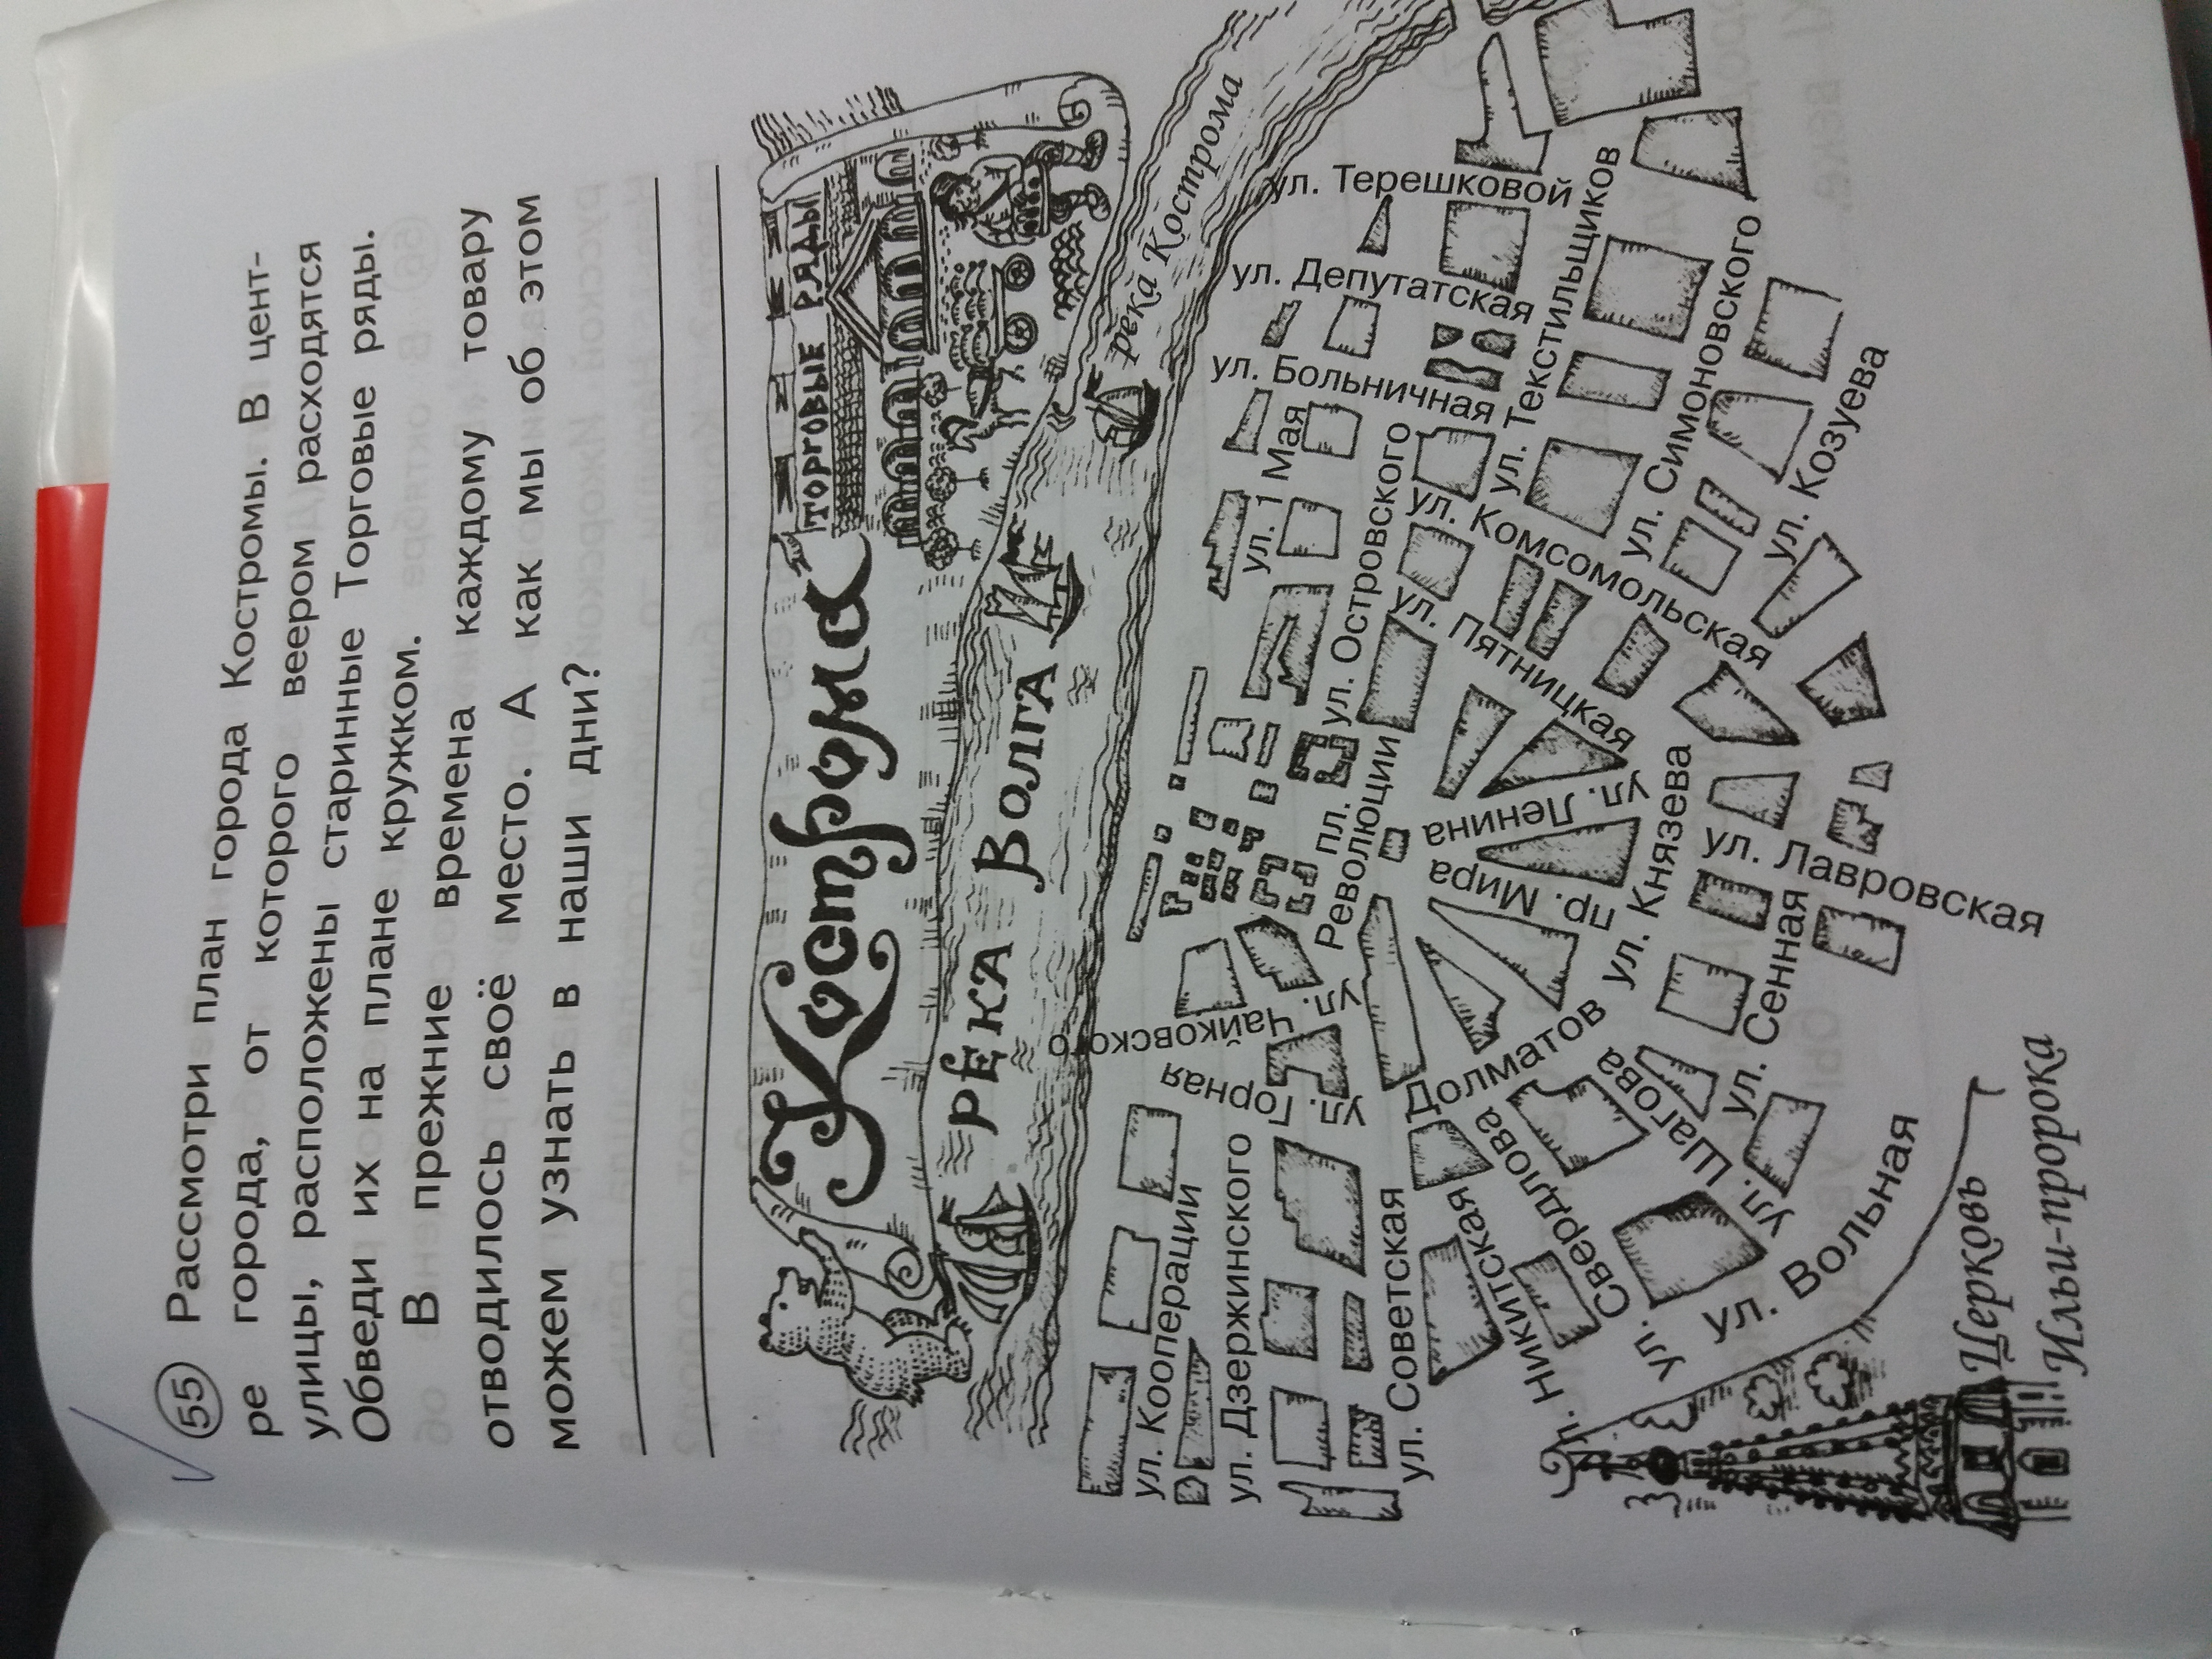 55 Рассмотри план города Костромы. В цент-
ре города, от которого веером расходятся
улицы, расположены старинные Торговые ряды.
Обведи их на плане кружком.
В прежние времена каждому товару
отводилось своё место. А как мы об этом
можем узнать в наши дни?
Кострома
ТОРГОВЫЕ РЯДЫ
РЕКА ВОЛГА
река Кострома
ул. Терешковой
ул. Депутатская
ул. Больничная
ул. 1 Мая
ул. Островского
ул. Текстильщиков
ул. Симоновского
ул. Козуева
ул. Комсомольская
ул. Пятницкая
пл.
Революции
ул. Ленина
пр. Мира
ул. Князева
ул. Лавровская
ул. Сенная
ул.
Чайковского
ул. Горная
Долматов
ул. Кооперации
ул. Дзержинского
ул. Советская
Никитская
ул. Свердлова
ул. Шагова
ул. Вольная
Церковь
Ильи-пророка